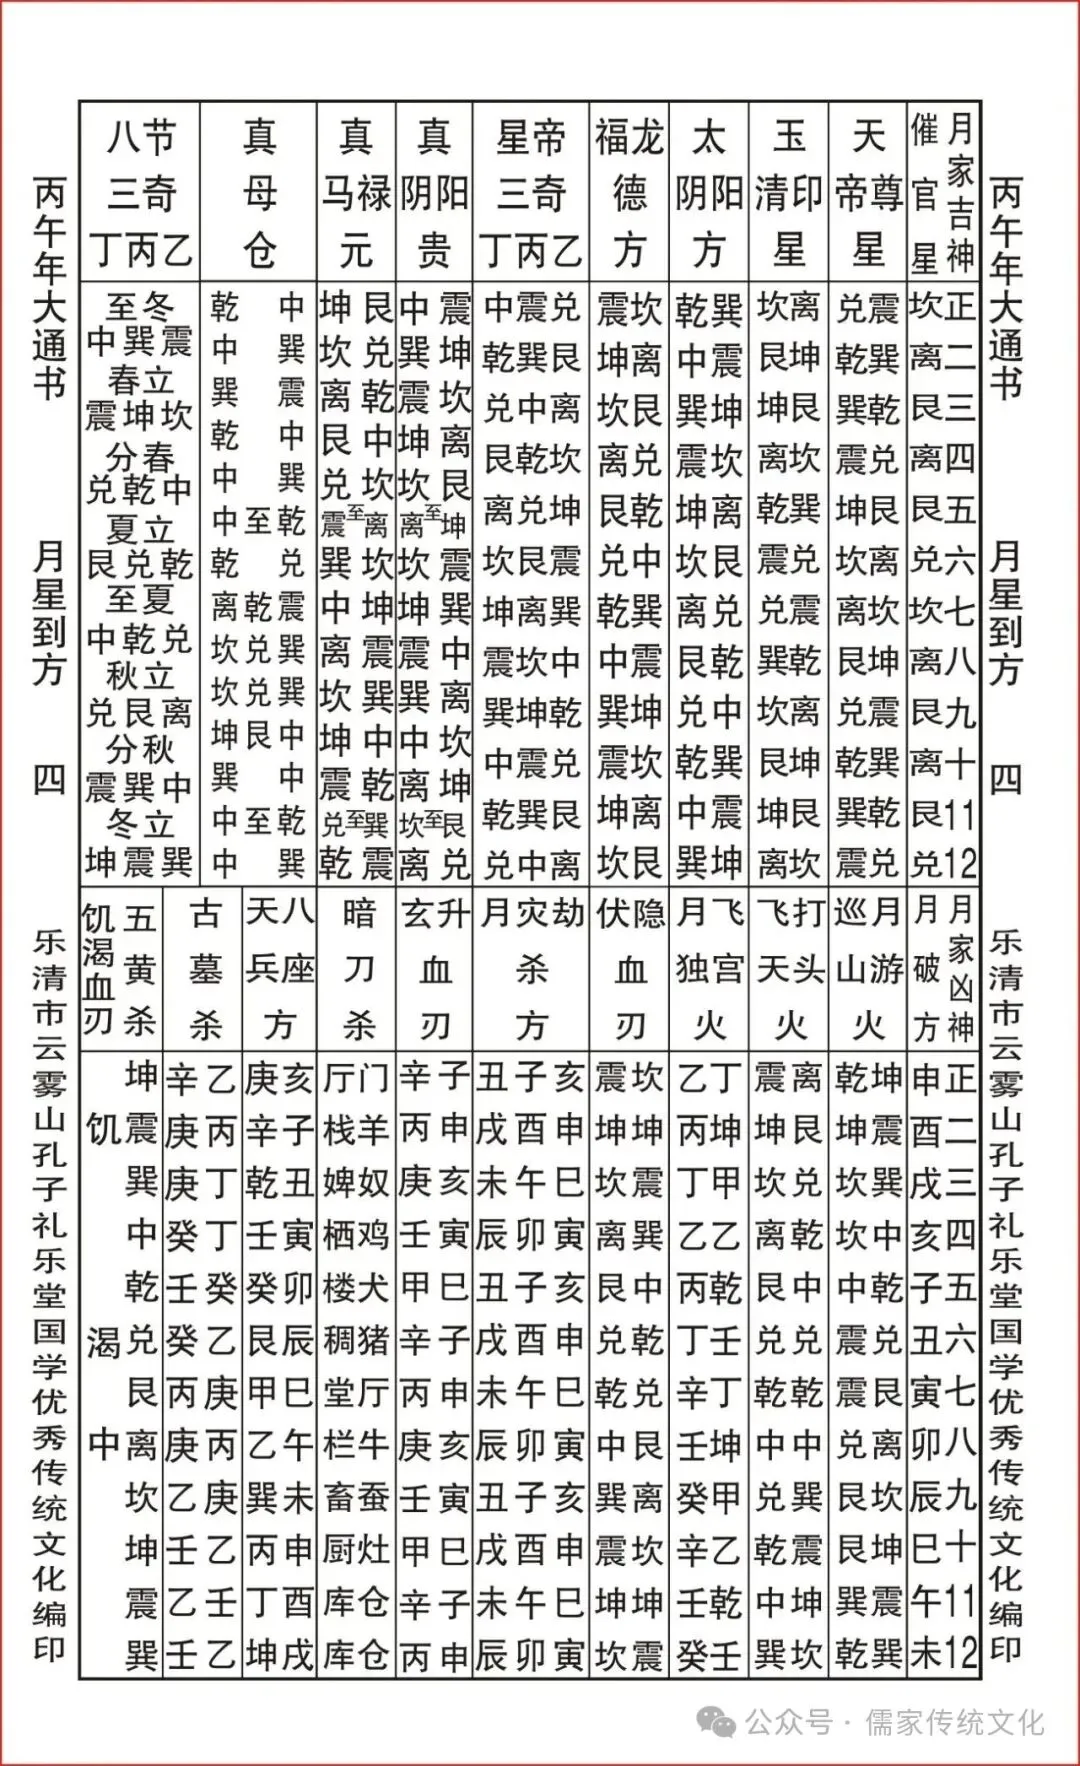 丙午年大通书
月星到方
四
乐清市云雾山孔子礼乐堂国学优秀传统文化编印
月家吉神
正二三四五六七八九十11 12
催官星
坎离艮离艮兑坎离艮离艮兑
天尊帝星
震巽乾兑艮离坎坤震巽乾兑
兑乾巽震坤坎离艮兑乾巽震
玉印清星
离坤艮坎巽兑震乾离坤艮坎
坎艮坤离乾震兑巽坎艮坤离
太阳阴方
巽震坤坎离艮兑乾中巽震坤
乾中巽震坤坎离艮兑乾中巽
龙福德方
坎离艮兑乾中巽震坤坎离艮
震坤坎离艮兑乾中巽震坤坎
帝星三奇
乙丙丁
兑艮离坎坤震巽中乾兑艮离
震巽中乾兑艮离坎坤震巽中
中乾兑艮离坎坤震巽中乾兑
真阳阴贵
震坤坎离艮坤震巽中离坎坤艮兑
至至
中巽震坤坎离坎坤震巽中离坎离
真禄马元
艮兑乾中坎离坎坤震巽中乾巽震
至至
坤坎离艮兑震巽中离坎坤震兑乾
真母仓
中巽震中巽乾兑震巽巽中中乾巽
至乾兑兑艮至
乾中巽乾中中乾离坎坎坤巽中中
八节三奇
乙丙丁
冬至
震巽中
立春
坎坤震
春分
中乾兑
立夏
乾兑艮
夏至
兑乾中
立秋
离艮兑
秋分
中巽震
立冬
巽震坤
月家凶神
正二三四五六七八九十11 12
月破方
申酉戌亥子丑寅卯辰巳午未
月游巡山火
坤震巽中乾兑艮离坎坤震巽
乾坤坎坎中震震兑艮艮巽乾
打头飞天火
离艮兑乾中兑乾中巽震坤坎
震坤坎离艮兑乾中兑乾中巽
飞宫月独火
丁坤甲乙乾壬丁坤甲乙乾壬
乙丙丁乙丙丁辛壬癸辛壬癸
隐伏血刃
坎坤震巽中乾兑艮离坎坤震
震坤坎离艮兑乾中巽震坤坎
劫灾月杀方
亥申巳寅亥申巳寅亥申巳寅
子酉午卯子酉午卯子酉午卯
丑戌未辰丑戌未辰丑戌未辰
升玄血刃
子申亥寅巳子申亥寅巳子申
辛丙庚壬甲辛丙庚壬甲辛丙
暗刀杀
门羊奴鸡犬猪厅牛蚕灶仓仓
厅栈婢栖楼稠堂栏畜厨库库
八座天兵方
亥子丑寅卯辰巳午未申酉戌
庚辛乾壬癸艮甲乙巽丙丁坤
古墓杀
乙丙丁丁癸乙庚丙庚乙壬乙
辛庚庚癸壬癸丙庚乙壬乙壬
五黄杀
坤震巽中乾兑艮离坎坤震巽
饥渴血刃
饥渴中
丙午年大通书
月星到方
四
乐清市云雾山孔子礼乐堂国学优秀传统文化编印
公众号·儒家传统文化